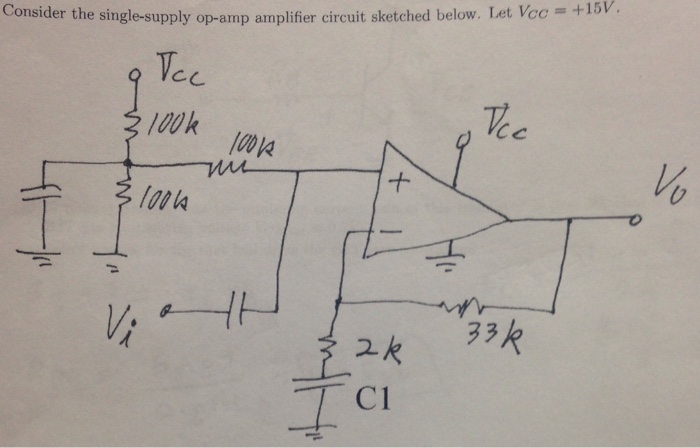 Consider the single-supply op-amp amplifier circuit sketched below. Let VCC = +15V.
Vcc
100k
100k
Vcc
100k
+
Vo
−
Vi
33k
2k
C1